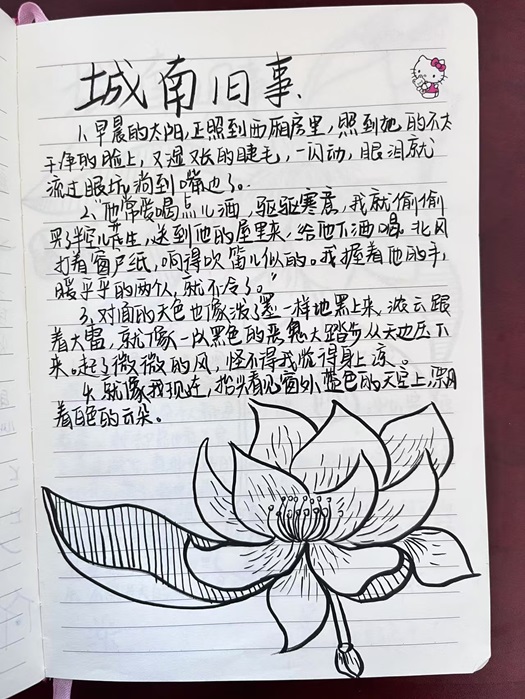 城南旧事
1.早晨的太阳,正照到西厢房里,照到她的不太
干净的脸上,又湿又长的睫毛,一闪动,眼泪就
流过眼坑淌到嘴边了。
2."他常常喝点儿酒,驱驱寒意,我就偷偷
买了半空儿花生,送到他的屋里来,给他下酒喝。北风
打着窗户纸,响得吹笛儿似的。我握着他的手,
暖乎乎的两个人,就不冷了。"
3.对面的天色也像泼了墨一样地黑上来,浓云跟
着大雷,就像一队黑色的恶鬼大踏步从天边压下
来。起了微微的风,怪不得我觉得身上凉。
4.就像我现在,抬头看见窗外蓝色的天空上,深
着白色的云朵。